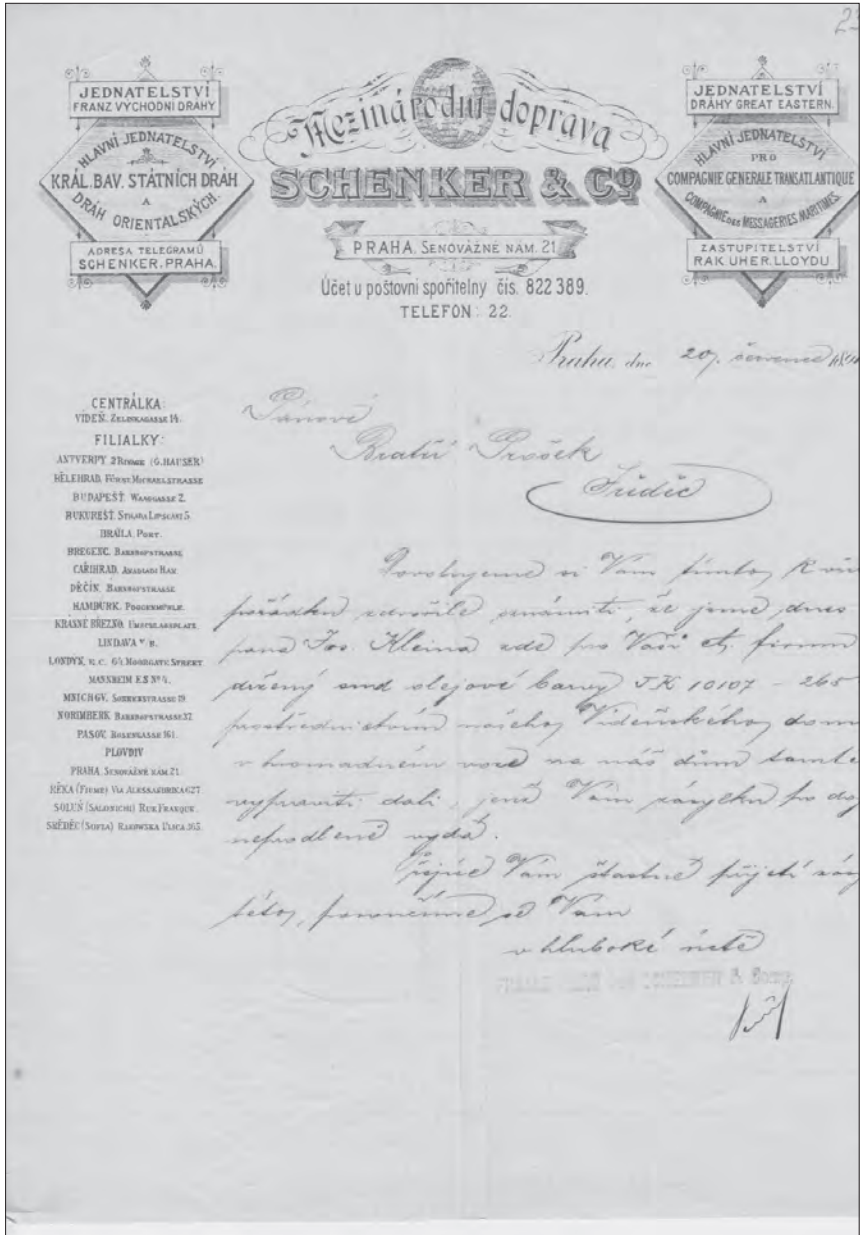 JEDNATELSTVÍ
FRANZ VÝCHODNÍ DRÁHY
HLAVNÍ JEDNATELSTVÍ
KRÁL. BAV. STÁTNÍCH DRAH
A
DRAH ORIENTALSKÝCH.
ADRESA TELEGRAMŮ
SCHENKER, PRAHA.
Mezinárodní doprava
SCHENKER & Co
PRAHA, SENOVÁŽNÉ NÁM. 21
Účet u poštovní spořitelny čís. 822 389.
TELEFON: 22.
JEDNATELSTVÍ
DRÁHY GREAT EASTERN.
HLAVNÍ JEDNATELSTVÍ
PRO
COMPAGNIE GENERALE TRANSATLANTIQUE
A
COMPAGNIE DES MESSAGERIES MARITIMES.
ZASTUPITELSTVÍ
RAK. UHER. LLOYDU
Praha, dne 20. července
CENTRÁLKA:
VÍDEŇ, ZELINKAGASSE 14.
FILIALKY:
ANTVERPY (G. HAUSER)
BĚLEHRAD, FÜRST MICHAELSTRASSE
BUDAPEŠŤ, WAAGGASSE 2.
BUKUREŠŤ, STRADA LIPSCANI 5.
BRAÏLA, PORT.
BREGENC, BAHNHOFSTRASSE
CAŘIHRAD,
DĚČÍN, BAHNHOFSTRASSE
HAMBURK, POGGENMÜHLE.
KRÁSNÉ BŘEZNO, UMSCHLAGPLATZ
LINDAVA
LONDÝN, E. C. MOORGATE STREET
MANNHEIM
MNICHOV,
NORIMBERK, BAHNHOFSTRASSE
PASOV, ROSENGASSE 161.
PLOVDIV
PRAHA, SENOVÁŽNÉ NÁM. 21
ŘEKA (FIUME) VIA ALESSANDRINA
SOLUŇ (SALONICHI) RUE FRANQUE.
SRĚDĚC (SOFIA) RAKOWSKA ULICA 365.
Pánové
Bratří Prošek
Dovolujeme si Vám tímto k
pořádku zdvořile oznámiti, že jsme dnes
pana Jos. Kleina zde pro Vaši ct. firmu
držený sud olejové barvy J.K 10107 – 265
prostřednictvím našeho Vídeňského domu
v hromadném voze na náš dům tamte
vypraviti dali, jenž Vám zásylku po do
neprodleně vydá.
Přejíce Vám šťastné přijetí
této, poroučíme se Vám
v hluboké úctě
SCHENKER &